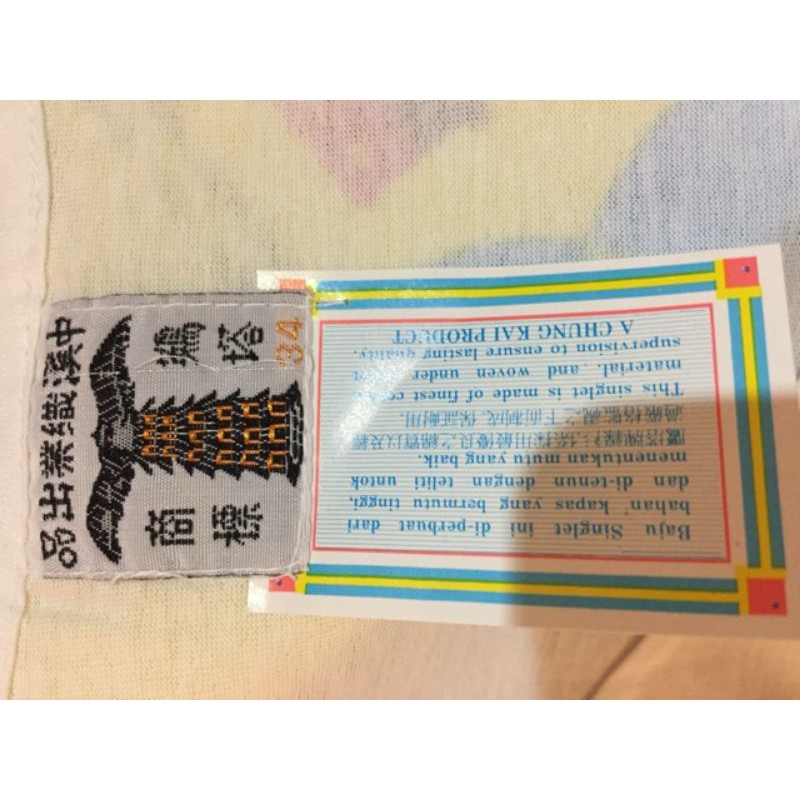 中溪織業出品
塔
商標
34
Baju Singlet ini di-perbuat dari
bahan² kapas yang bermutu tinggi,
dan di-tenun dengan teliti untuk
menentukan mutu yang baik.
鷹塔牌採用最優良之以及經
嚴格監視之下而制成,保証耐用.
This singlet is made of finest
material. and woven under
supervision to ensure lasting quality.
A CHUNG KAI PRODUCT